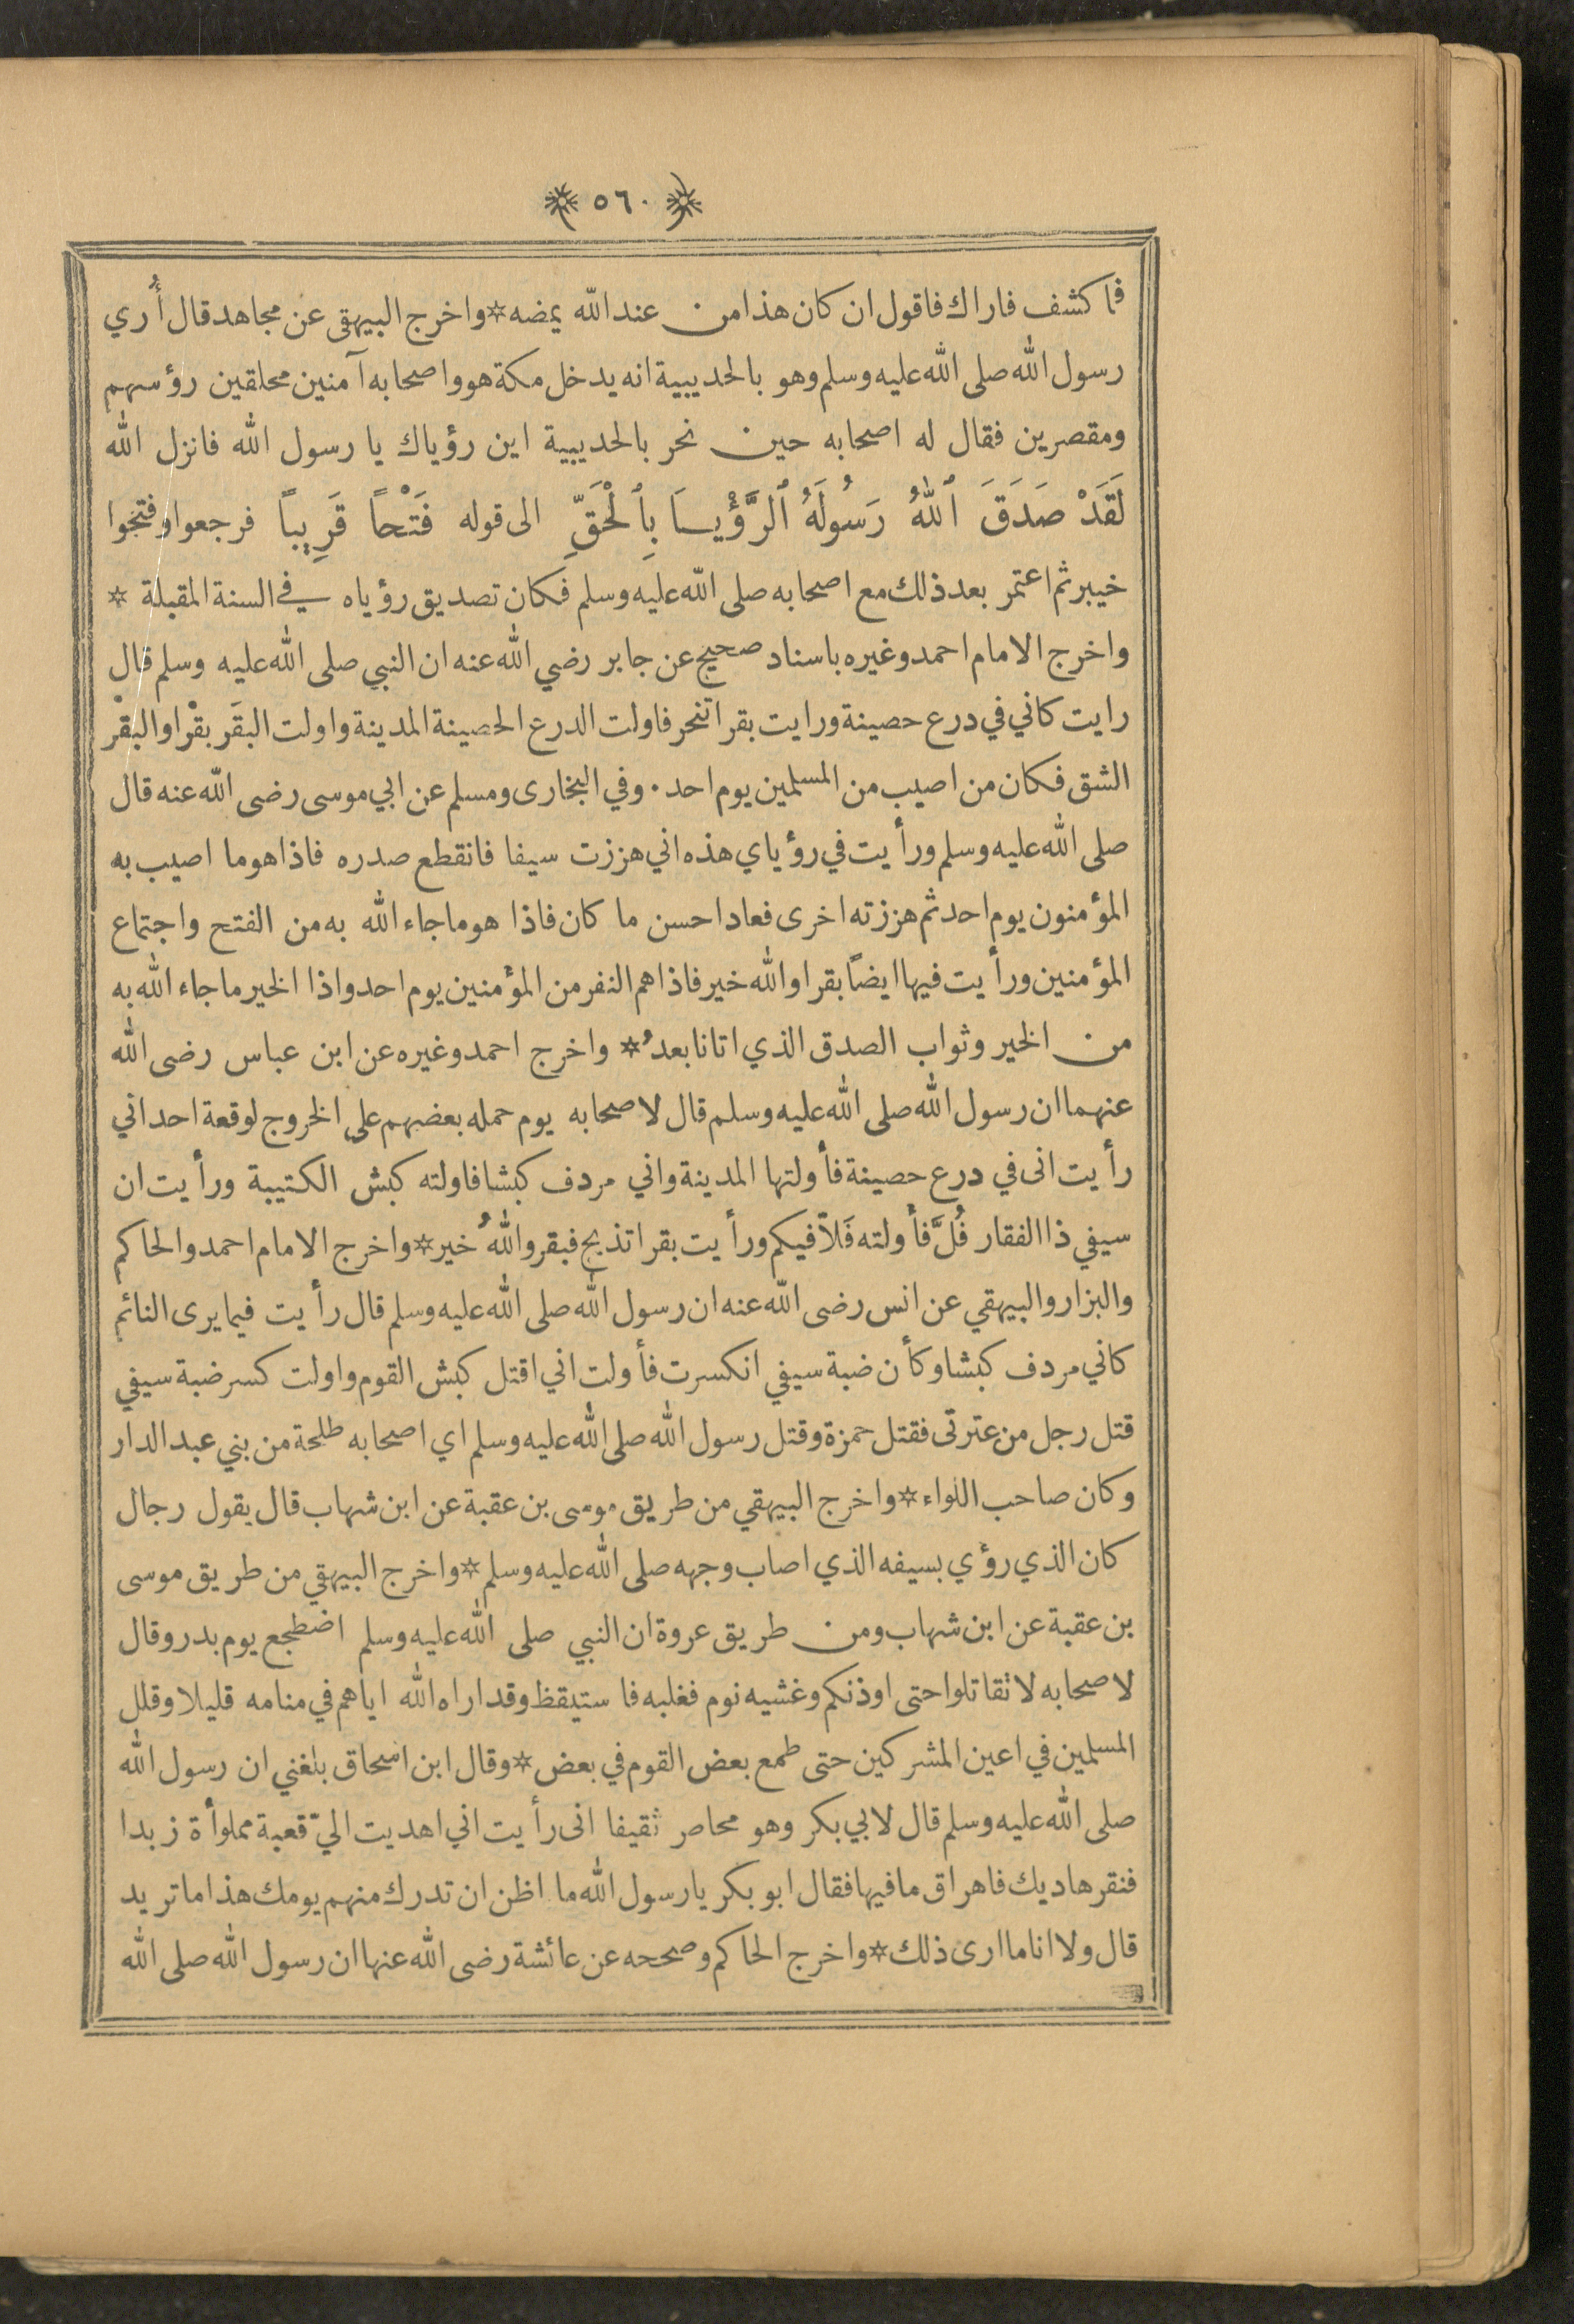 ٥٦٠
فما كشف فاراك فاقول ان كان هذا من عند الله يمضه * واخرج البيهقي عن مجاهد قال أُري
رسول الله صلى الله عليه وسلم وهو بالحديبية انه يدخل مكة هو واصحابه آمنين محلقين رؤسهم
ومقصرين فقال له اصحابه حين نحر بالحديبية اين رؤياك يا رسول الله فانزل الله
لَقَدْ صَدَقَ ٱللهُ رَسُولَهُ ٱلرُّؤْيَا بِٱلْحَقِّ الى قوله فَتْحًا قَرِيبًا فرجعوا وفتحوا
خيبر ثم اعتمر بعد ذلك مع اصحابه صلى الله عليه وسلم فكان تصديق رؤياه في السنة المقبلة *
واخرج الامام احمد وغيره باسناد صحيح عن جابر رضي الله عنه ان النبي صلى الله عليه وسلم قال
رايت كاني في درع حصينة ورايت بقرا تنحر فاولت الدرع الحصينة المدينة واولت البقَر بقْرا والبقْر
الشق فكان من اصيب من المسلمين يوم احد . وفي البخارى ومسلم عن ابي موسى رضى الله عنه قال
صلى الله عليه وسلم ورأيت في رؤياي هذه اني هززت سيفا فانقطع صدره فاذا هو ما اصيب به
المؤمنون يوم احد ثم هززته اخرى فعاد احسن ما كان فاذا هو ما جاء الله به من الفتح واجتماع
المؤمنين ورأيت فيها ايضًا بقرا والله خير فاذا هم النفر من المؤمنين يوم احد واذا الخير ما جاء الله به
من الخير وثواب الصدق الذي اتانا بعدُ * واخرج احمد وغيره عن ابن عباس رضى الله
عنهما ان رسول الله صلى الله عليه وسلم قال لاصحابه يوم حمله بعضهم على الخروج لوقعة احد اني
رأيت انى في درع حصينة فأولتها المدينة واني مردف كبشا فاولته كبش الكتيبة ورأيت ان
سيفي ذا الفقار فُلَّ فأولته فَلاًّ فيكم ورأيت بقرا تذبح فبقر واللهُ خير * واخرج الامام احمد والحاكم
والبزار والبيهقي عن انس رضى الله عنه ان رسول الله صلى الله عليه وسلم قال رأيت فيما يرى النائم
كاني مردف كبشا وكأن ضبة سيفي انكسرت فأولت اني اقتل كبش القوم واولت كسر ضبة سيفي
قتل رجل من عترتى فقتل حمزة وقتل رسول الله صلى الله عليه وسلم اي اصحابه طلحة من بني عبد الدار
وكان صاحب اللواء * واخرج البيهقي من طريق موسى بن عقبة عن ابن شهاب قال يقول رجال
كان الذي رؤي بسيفه الذي اصاب وجهه صلى الله عليه وسلم * واخرج البيهقي من طريق موسى
بن عقبة عن ابن شهاب ومن طريق عروة ان النبي صلى الله عليه وسلم اضطجع يوم بدر وقال
لاصحابه لا تقاتلوا حتى اوذنكم وغشيه نوم فغلبه فاستيقظ وقد اراه الله اياهم في منامه قليلا وقلل
المسلمين في اعين المشركين حتى طمع بعض القوم في بعض * وقال ابن اسحاق بلغني ان رسول الله
صلى الله عليه وسلم قال لابي بكر وهو محاصر ثقيفا انى رأيت اني اهديت اليّ قعبة مملوأة زبدا
فنقرها ديك فاهراق ما فيها فقال ابو بكر يا رسول الله ما اظن ان تدرك منهم يومك هذا ما تريد
قال ولا انا ما ارى ذلك * واخرج الحاكم وصححه عن عائشة رضى الله عنها ان رسول الله صلى الله